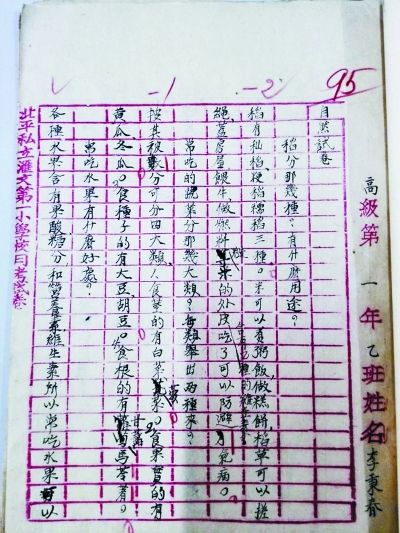 高級第一年乙班姓名李東春
95
-2
-1
自然試卷
稻分那幾種?有什麽用途。
稻有秈稻,硬稻,糯稻三種。米可以煮粥飯,做糕餅,稻草可以搓
繩,蓋房屋,餵牛,做燃料。米的外皮吃了可以防避免病。
常吃的蔬菜分那幾大類?每類舉出兩種來?
按其被數分可分四大類,食葉的有白菜,菠菜。食果實的有
黃瓜,冬瓜。食種子的有大豆,胡豆。食根的有馬苓薯。
甘薯
常吃水果有什麽好處?
各種水果含有果酸糖分和營養素維生素所以常吃水果可以
北平私立滙文第一小學校月考試卷